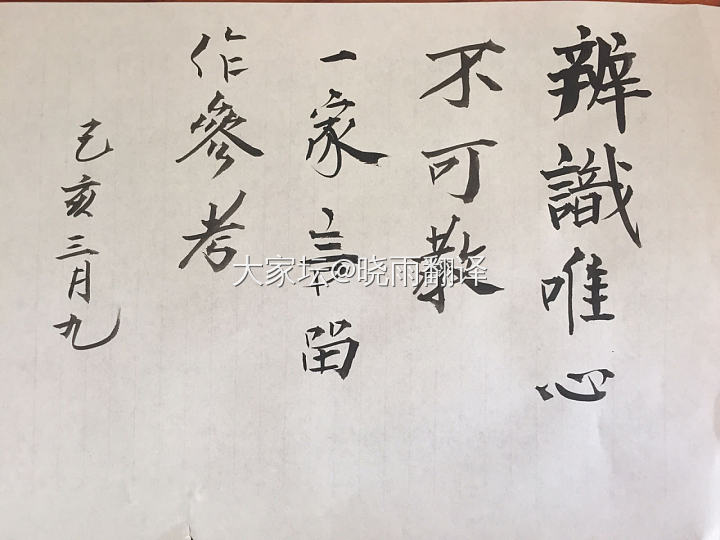 辨識唯心
不可教
一家言留
作參考
己亥三月九
大家坛@晓雨翻译